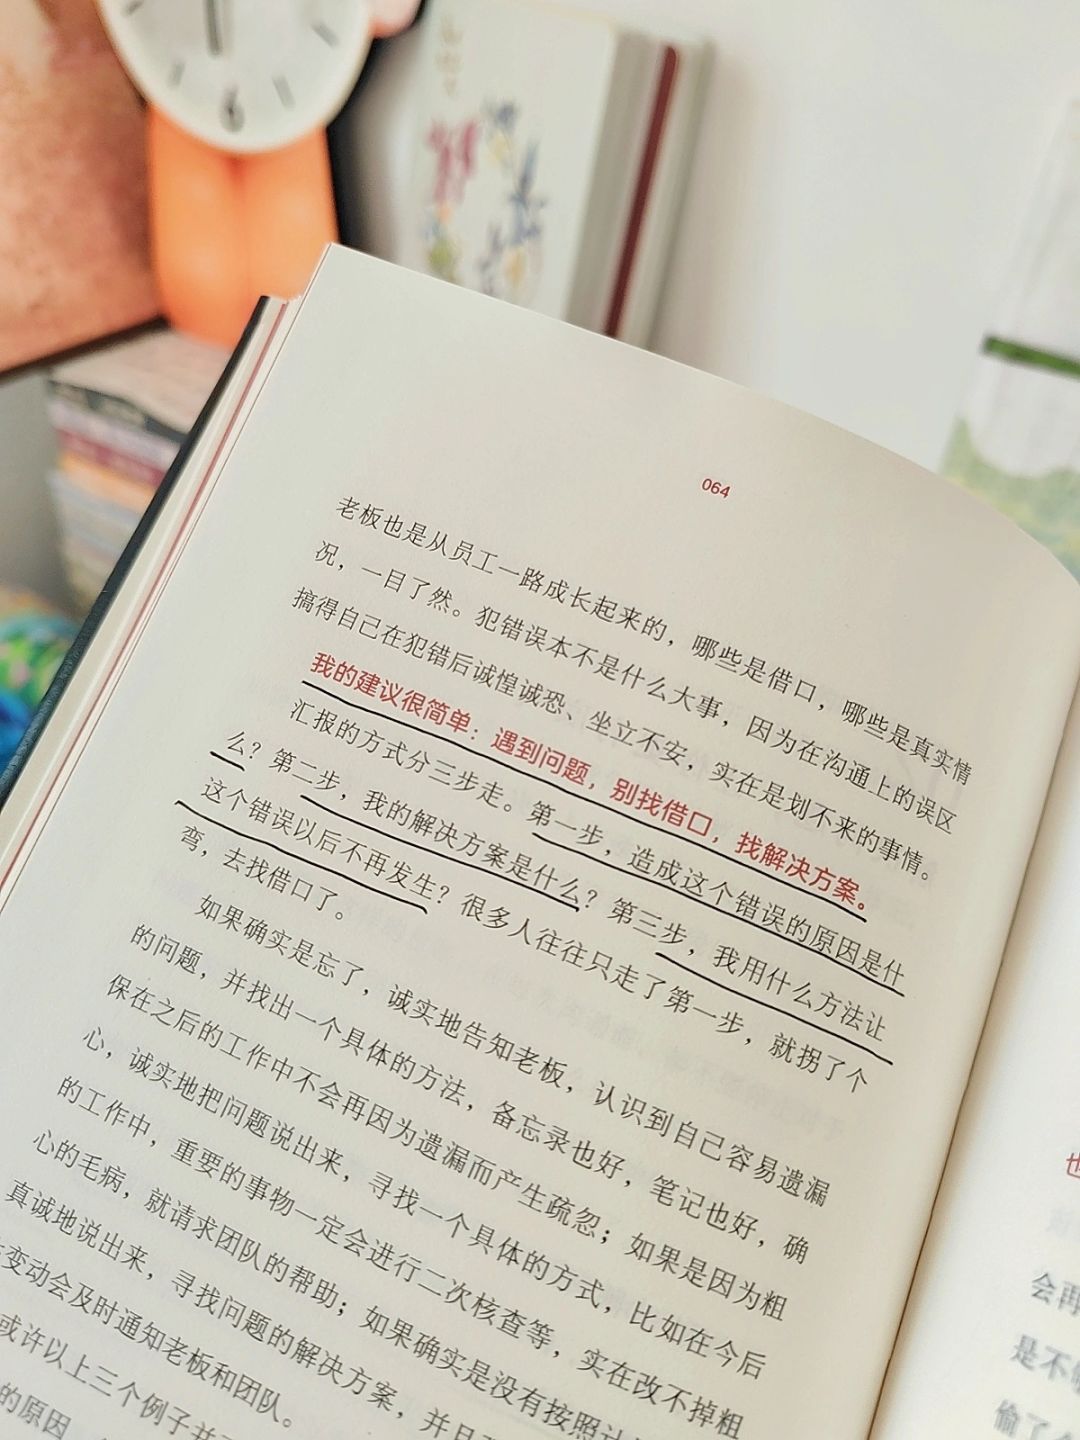 064
老板也是从员工一路成长起来的，哪些是借口，哪些是真实情
况，一目了然。犯错误本不是什么大事，因为在沟通上的误区
搞得自己在犯错后诚惶诚恐、坐立不安，实在是划不来的事情。
我的建议很简单：遇到问题，别找借口，找解决方案。
汇报的方式分三步走。第一步，造成这个错误的原因是什
么？第二步，我的解决方案是什么？第三步，我用什么方法让
这个错误以后不再发生？很多人往往只走了第一步，就拐了个
弯，去找借口了。
如果确实是忘了，诚实地告知老板，认识到自己容易遗漏
的问题，并找出一个具体的方法，备忘录也好，笔记也好，确
保在之后的工作中不会再因为遗漏而产生疏忽；如果是因为粗
心，诚实地把问题说出来，寻找一个具体的方式，比如在今后
的工作中，重要的事物一定会进行二次核查等，实在改不掉粗
心的毛病，就请求团队的帮助；如果确实是没有按照计
真诚地说出来，寻找问题的解决方案，并且
变动会及时通知老板和团队。
或许以上三个例子并
的原因
也
会再
是不
偷了